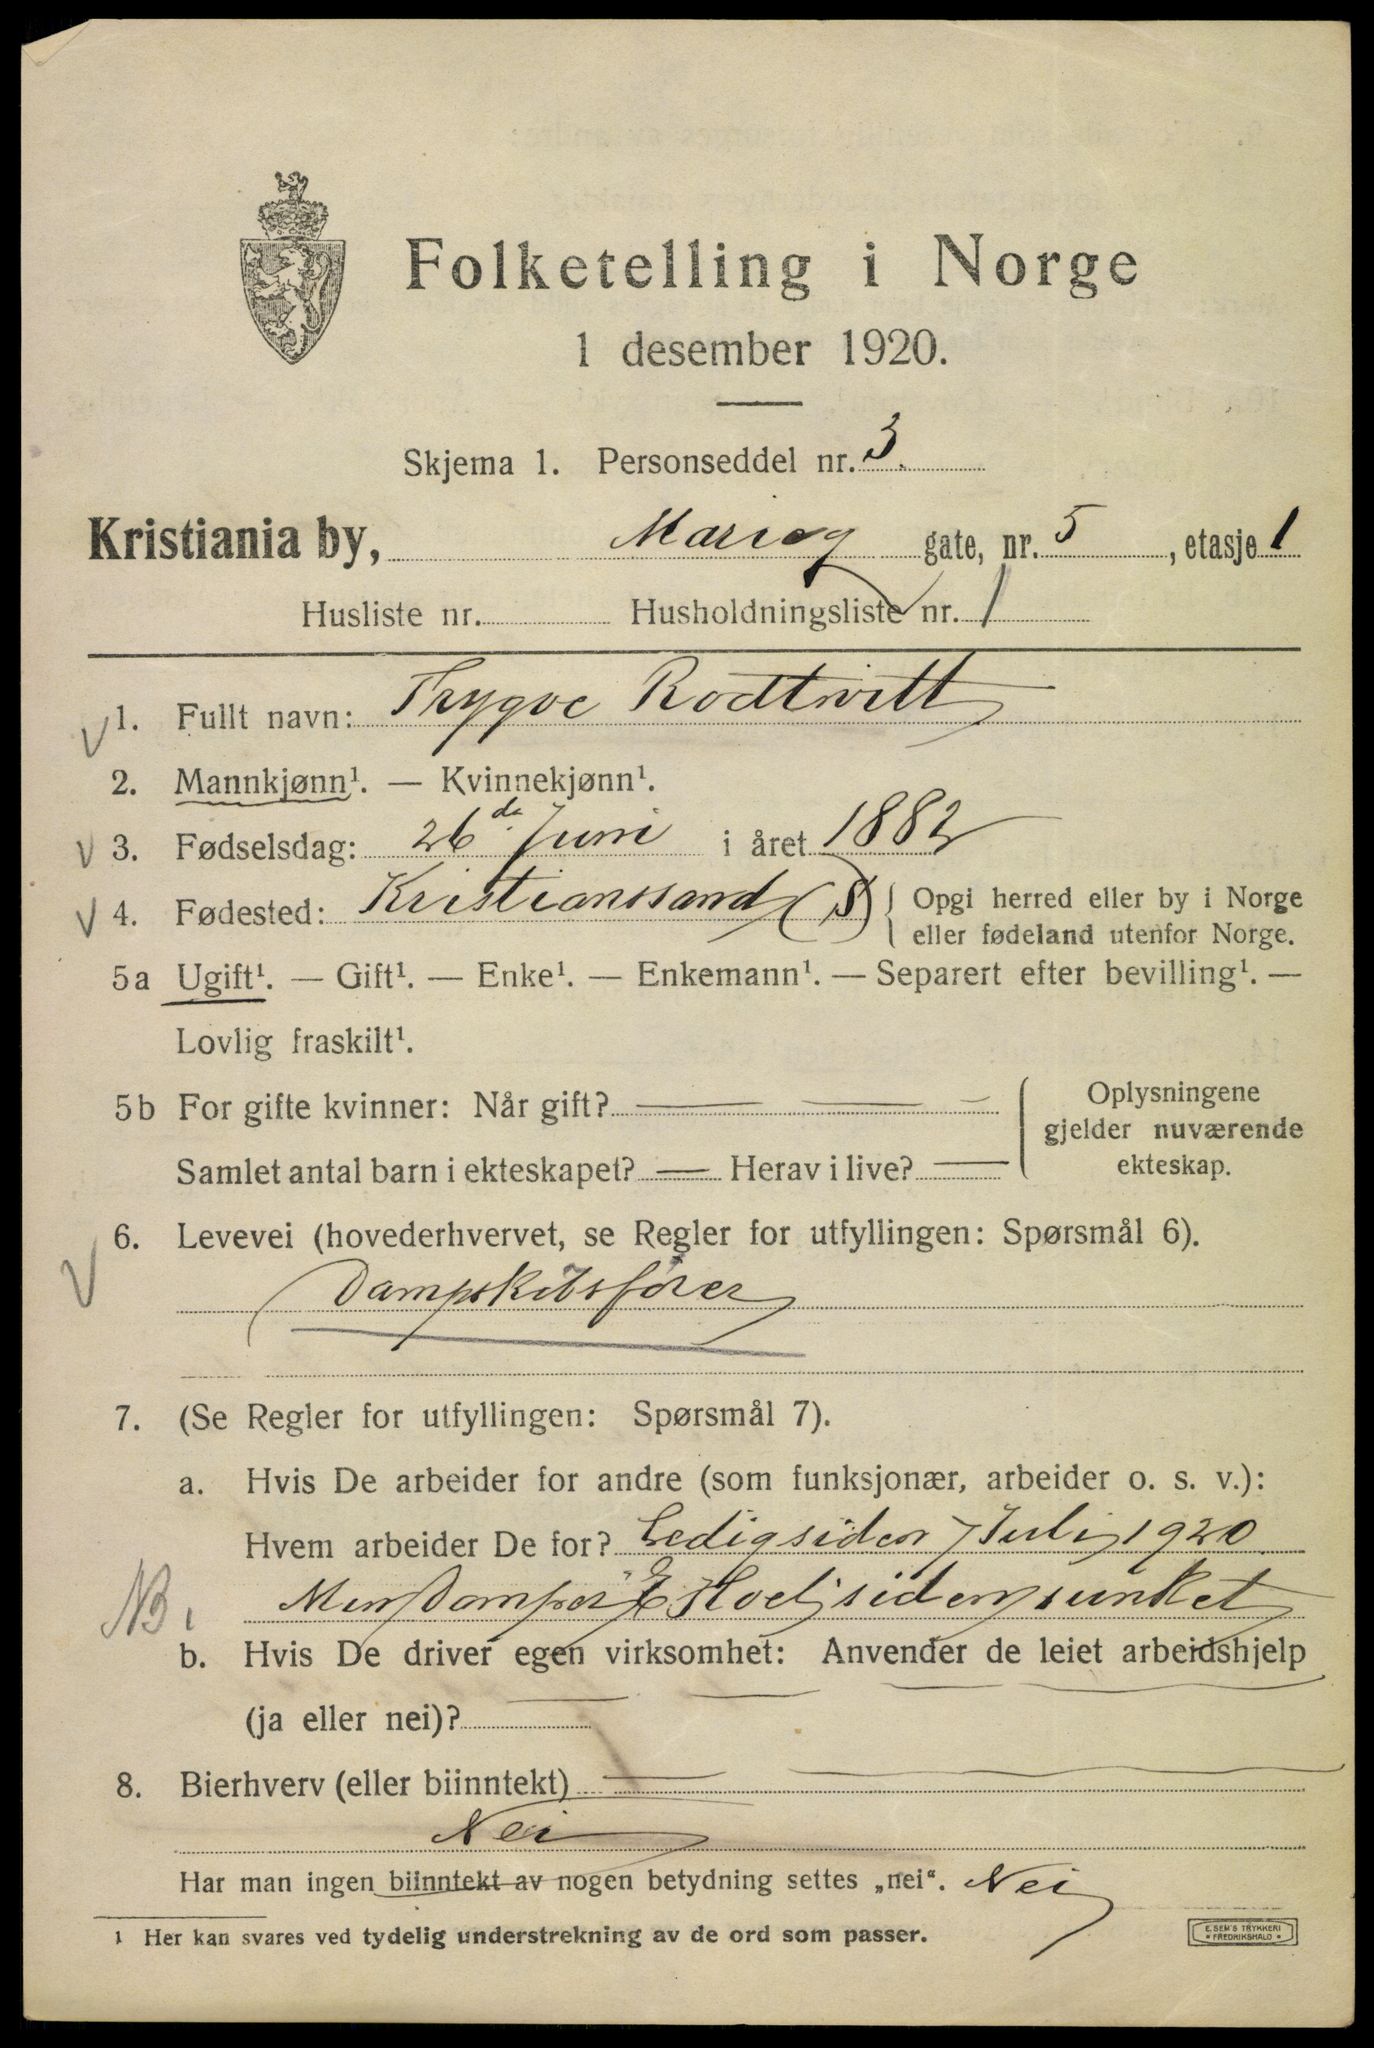 Folketelling i Norge
1 desember 1920.
Skjema 1. Personseddel nr. 3.
Kristiania by, gate, nr. 5, etasje 1
Husliste nr. Husholdningsliste nr. 1
1. Fullt navn: Trygve Rodtwitt
2. Mannkjønn¹. — Kvinnekjønn¹.
3. Fødselsdag: 26de Juni i året 1882
4. Fødested: Kristianssand (S) { Opgi herred eller by i Norge
eller fødeland utenfor Norge.
5a Ugift¹. — Gift¹. — Enke¹. — Enkemann¹. — Separert efter bevilling¹. —
Lovlig fraskilt¹.
5b For gifte kvinner: Når gift? — — —
Samlet antal barn i ekteskapet? — Herav i live? —
Oplysningene
gjelder nuværende
ekteskap.
6. Levevei (hovederhvervet, se Regler for utfyllingen: Spørsmål 6).
Dampskibsfører
7. (Se Regler for utfyllingen: Spørsmål 7).
a. Hvis De arbeider for andre (som funksjonær, arbeider o. s. v.):
Hvem arbeider De for? Ledig siden 7 Juli 1920
NB. Min Damper siden sunket
b. Hvis De driver egen virksomhet: Anvender de leiet arbeidshjelp
(ja eller nei)? — — — —
8. Bierhverv (eller biinntekt) — —
Nei
Har man ingen biinntekt av nogen betydning settes „nei". Nei
1 Her kan svares ved tydelig understrekning av de ord som passer.
E. SEM'S TRYKKERI
FREDRIKSHALD